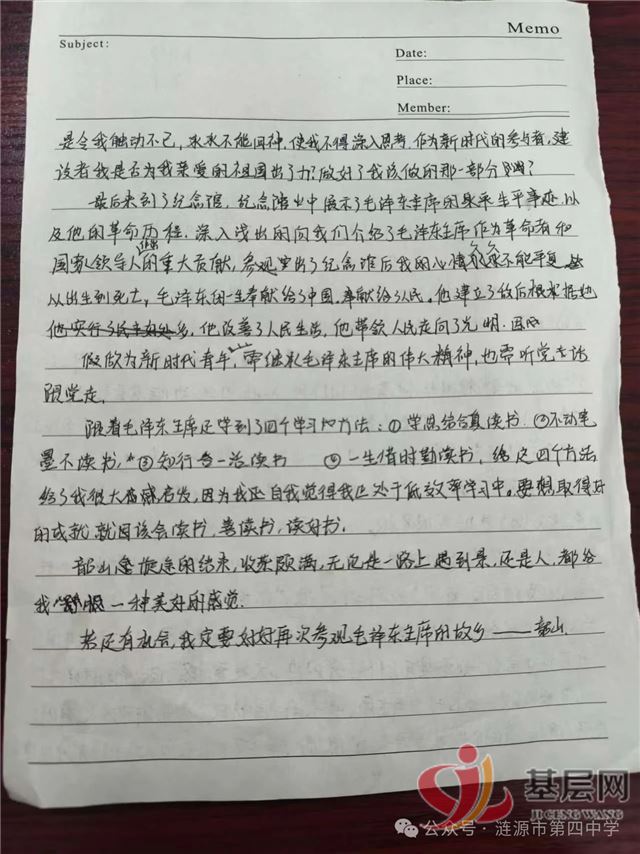 Memo
Subject:
Date:
Place:
Member:
是令我触动不已,久久不能回神,使我不得深入思考,作为新时代的参与者,建
设者我是否为我亲爱的祖国出了力?做好了我该做的那一部分吗?
最后来到了纪念馆,纪念馆中展示了毛泽东主席的生平事迹以
及他的革命历程,深入浅出的向我们介绍了毛泽东主席作为革命者和
国家领导人的重大贡献,参观出了纪念馆后我的心情久久不能平复
从出生到死亡,毛泽东的一生奉献给了中国,奉献给了人民。他建立了敌后根据地
他实行了,他改善了人民生活,他带领人民走向了光明.
做为新时代青年,需继承毛泽东主席的伟大精神,也需听党话
跟党走.
跟着毛泽东主席还学到了四个学习的方法:①学思结合真读书.②不动笔
墨不读书,③知行合一活读书 ④一生惜时勤读书,这四个方法
给了我很大启发,因为我自我觉得我还处于低效率学习中,要想取得好
的成就,就应该会读书,善读书,读好书.
韶山旅途的结束,收获颇满,无论是一路上遇到景,还是人,都给
我一种美好的感觉.
若还有机会,我定要好好再次参观毛泽东主席的故乡——韶山
基层网
JI CENG WANG
公众号·涟源市第四中学